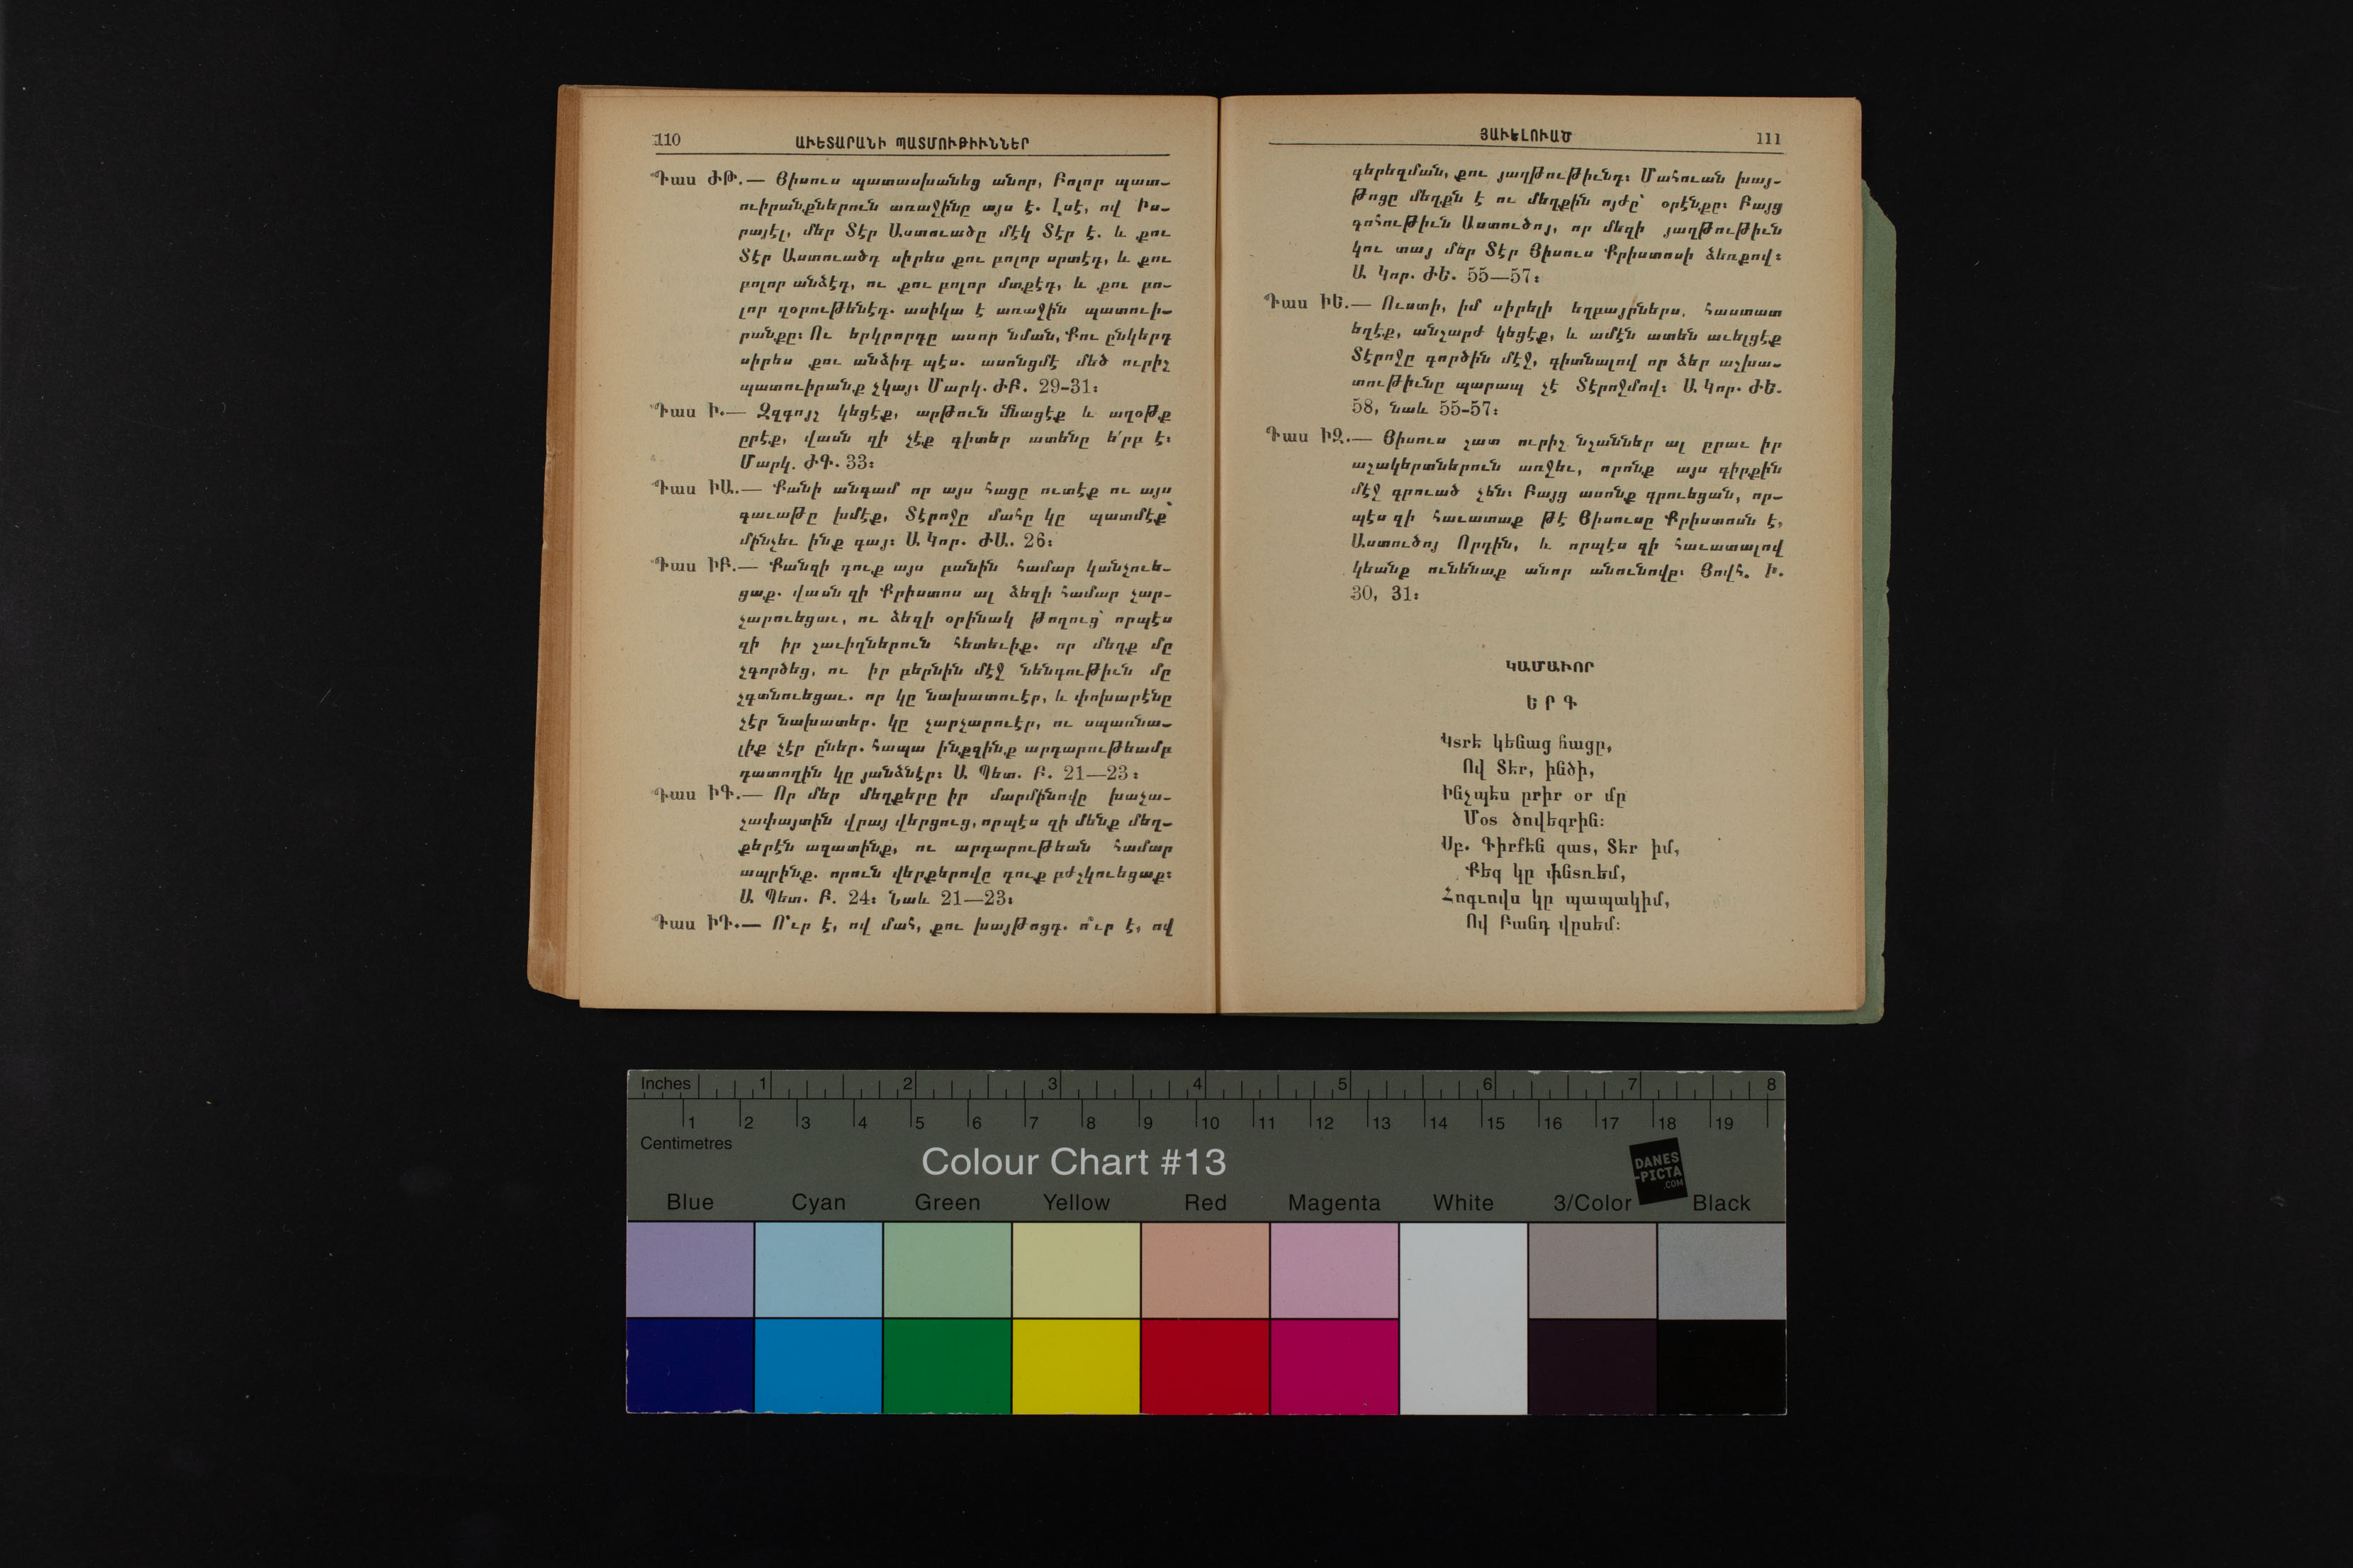 110 ԱՒԵՏԱՐԱՆԻ ՊԱՏՄՈՒԹԻՒՆՆԵՐ
Դաս ԺԹ.— Յիսուս պատասխանեց անոր, Բոլոր պատ-
ուիրանքներուն առաջինը այս է. Լսէ, ով Իս-
րայէլ, մեր Տէր Աստուածը մէկ Տէր է. և քու
Տէր Աստուածդ սիրես քու բոլոր սրտէդ, և քու
բոլոր անձէդ, ու քու բոլոր մտքէդ, և քու բո-
լոր զօրութենէդ. ասիկա է առաջին պատուի-
րանքը։ Ու երկրորդը ասոր նման, Քու ընկերդ
սիրես քու անձիդ պէս. ասոնցմէ մեծ ուրիշ
պատուիրանք չկայ։ Մարկ. ԺԲ. 29-31։
Դաս Ի.— Զգոյշ կեցէք, արթուն մնացէք և աղօթք
ըրէք, վասն զի չէք գիտեր ատենը ե՛րբ է։
Մարկ. ԺԳ. 33։
Դաս ԻԱ.— Քանի անգամ որ այս հացը ուտէք ու այս
գաւաթը խմէք, Տէրոջը մահը կը պատմէք՝
մինչեւ ինք գայ։ Ա. Կոր. ԺԱ. 26։
Դաս ԻԲ.— Քանզի դուք այս բանին համար կանչուե-
ցաք. վասն զի Քրիստոս ալ ձեզի համար չար-
չարուեցաւ, ու ձեզի օրինակ թողուց՝ որպէս
զի իր շաւիղներուն հետեւիք. որ մեղք մը
չգործեց, ու իր բերնին մէջ նենգութիւն մը
չգտնուեցաւ. որ կը նախատուէր, և փոխարէնը
չէր նախատեր. կը չարչարուէր, ու սպառնա-
լիք չէր ըներ. հապա ինքզինք արդարութեամբ
դատողին կը յանձնէր։ Ա. Պետ. Բ. 21—23։
Դաս ԻԳ.— Որ մեր մեղքերը իր մարմինովը խաչա-
չափայտին վրայ վերցուց, որպէս զի մենք մեղ-
քերէն ազատինք, ու արդարութեան համար
ապրինք. որուն վերքերովը դուք բժշկուեցաք։
Ա. Պետ. Բ. 24։ Նաև 21—23։
Դաս ԻԴ.— Ո՞ւր է, ով մահ, քու խայթոցդ. ո՞ւր է, ով
ՅԱՒԵԼՈՒԱԾ 111
գերեզման, քու յաղթութիւնդ։ Մահուան խայ-
թոցը մեղքն է ու մեղքին ոյժը՝ օրէնքը։ Բայց
գոհութիւն Աստուծոյ, որ մեզի յաղթութիւն
կու տայ մեր Տէր Յիսուս Քրիստոսի ձեռքով։
Ա. Կոր. ԺԵ. 55—57։
Դաս ԻԵ.— Ուստի, իմ սիրելի եղբայրներս, հաստատ
եղէք, անշարժ կեցէք, և ամէն ատեն աւելցէք
Տէրոջը գործին մէջ, գիտնալով որ ձեր աշխա-
տութիւնը պարապ չէ Տէրոջմով։ Ա. Կոր. ԺԵ.
58, նաև 55-57։
Դաս ԻԶ.— Յիսուս շատ ուրիշ նշաններ ալ ըրաւ իր
աշակերտներուն առջեւ, որոնք այս գիրքին
մէջ գրուած չեն։ Բայց ասոնք գրուեցան, որ-
պէս զի հաւատաք թէ Յիսուսը Քրիստոսն է,
Աստուծոյ Որդին, և որպէս զի հաւատալով
կեանք ունենաք անոր անունովը։ Յովհ. Ի.
30, 31։
ԿԱՄԱՒՈՐ
ԵՐԳ
Կտրե կենաց հացը,
Ով Տէր, ինծի,
Ինչպէս ըրիր օր մը
Մօտ ծովեզրին։
Սբ. Գիրքէն զատ, Տէր իմ,
Քեզ կը փնտռեմ,
Հոգւովս կը պապակիմ,
Ով Բանդ վըսեմ։
Inches 1 2 3 4 5 6 7 8
1 2 3 4 5 6 7 8 9 10 11 12 13 14 15 16 17 18 19
Centimetres
Colour Chart #13
DANES
-PICTA
.COM
Blue Cyan Green Yellow Red Magenta White 3/Color Black